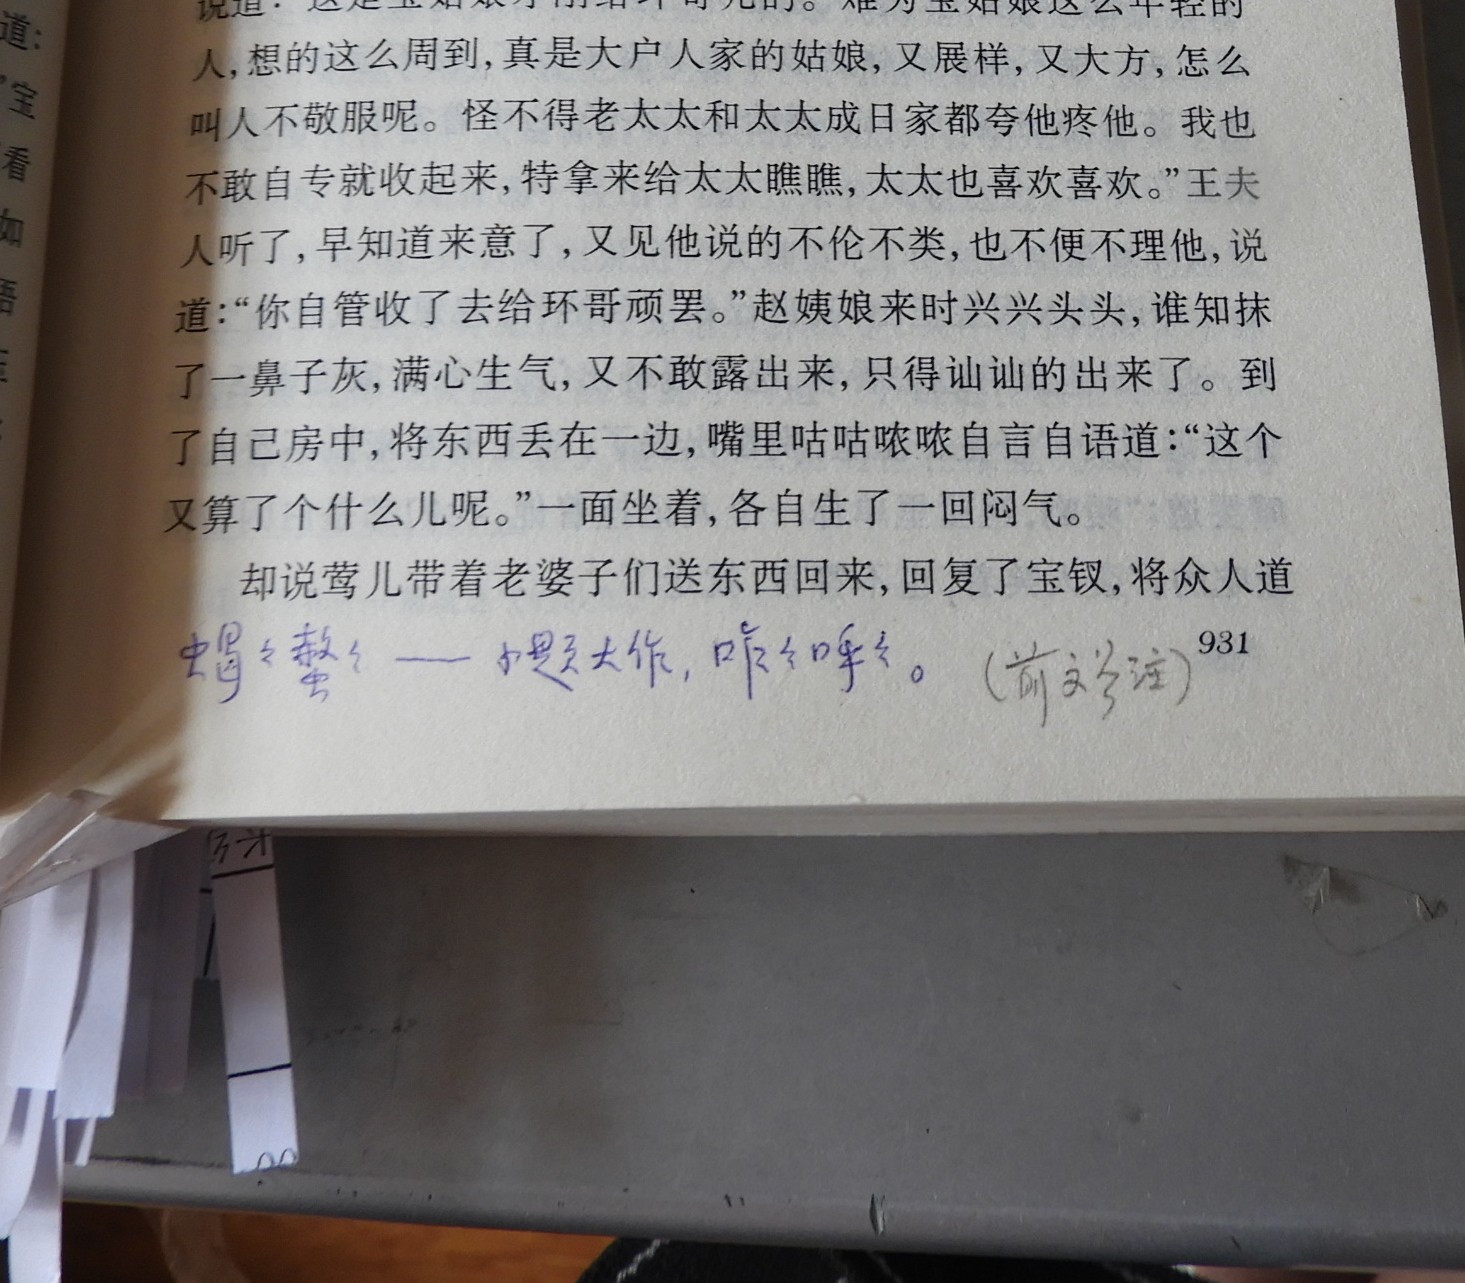 道：
"宝
看
如
说道："这是宝姑娘才刚给环哥儿的。难为宝姑娘这么年轻的
人，想的这么周到，真是大户人家的姑娘，又展样，又大方，怎么
叫人不敬服呢。怪不得老太太和太太成日家都夸他疼他。我也
不敢自专就收起来，特拿来给太太瞧瞧，太太也喜欢喜欢。”王夫
人听了，早知道来意了，又见他说的不伦不类，也不便不理他，说
道：“你自管收了去给环哥顽罢。”赵姨娘来时兴兴头头，谁知抹
了一鼻子灰，满心生气，又不敢露出来，只得讪讪的出来了。到
了自己房中，将东西丢在一边，嘴里咕咕哝哝自言自语道：“这个
又算了个什么儿呢。”一面坐着，各自生了一回闷气。
却说莺儿带着老婆子们送东西回来，回复了宝钗，将众人道
931
蝎々螫々——小题大作，咋々呼々。（前文有注）